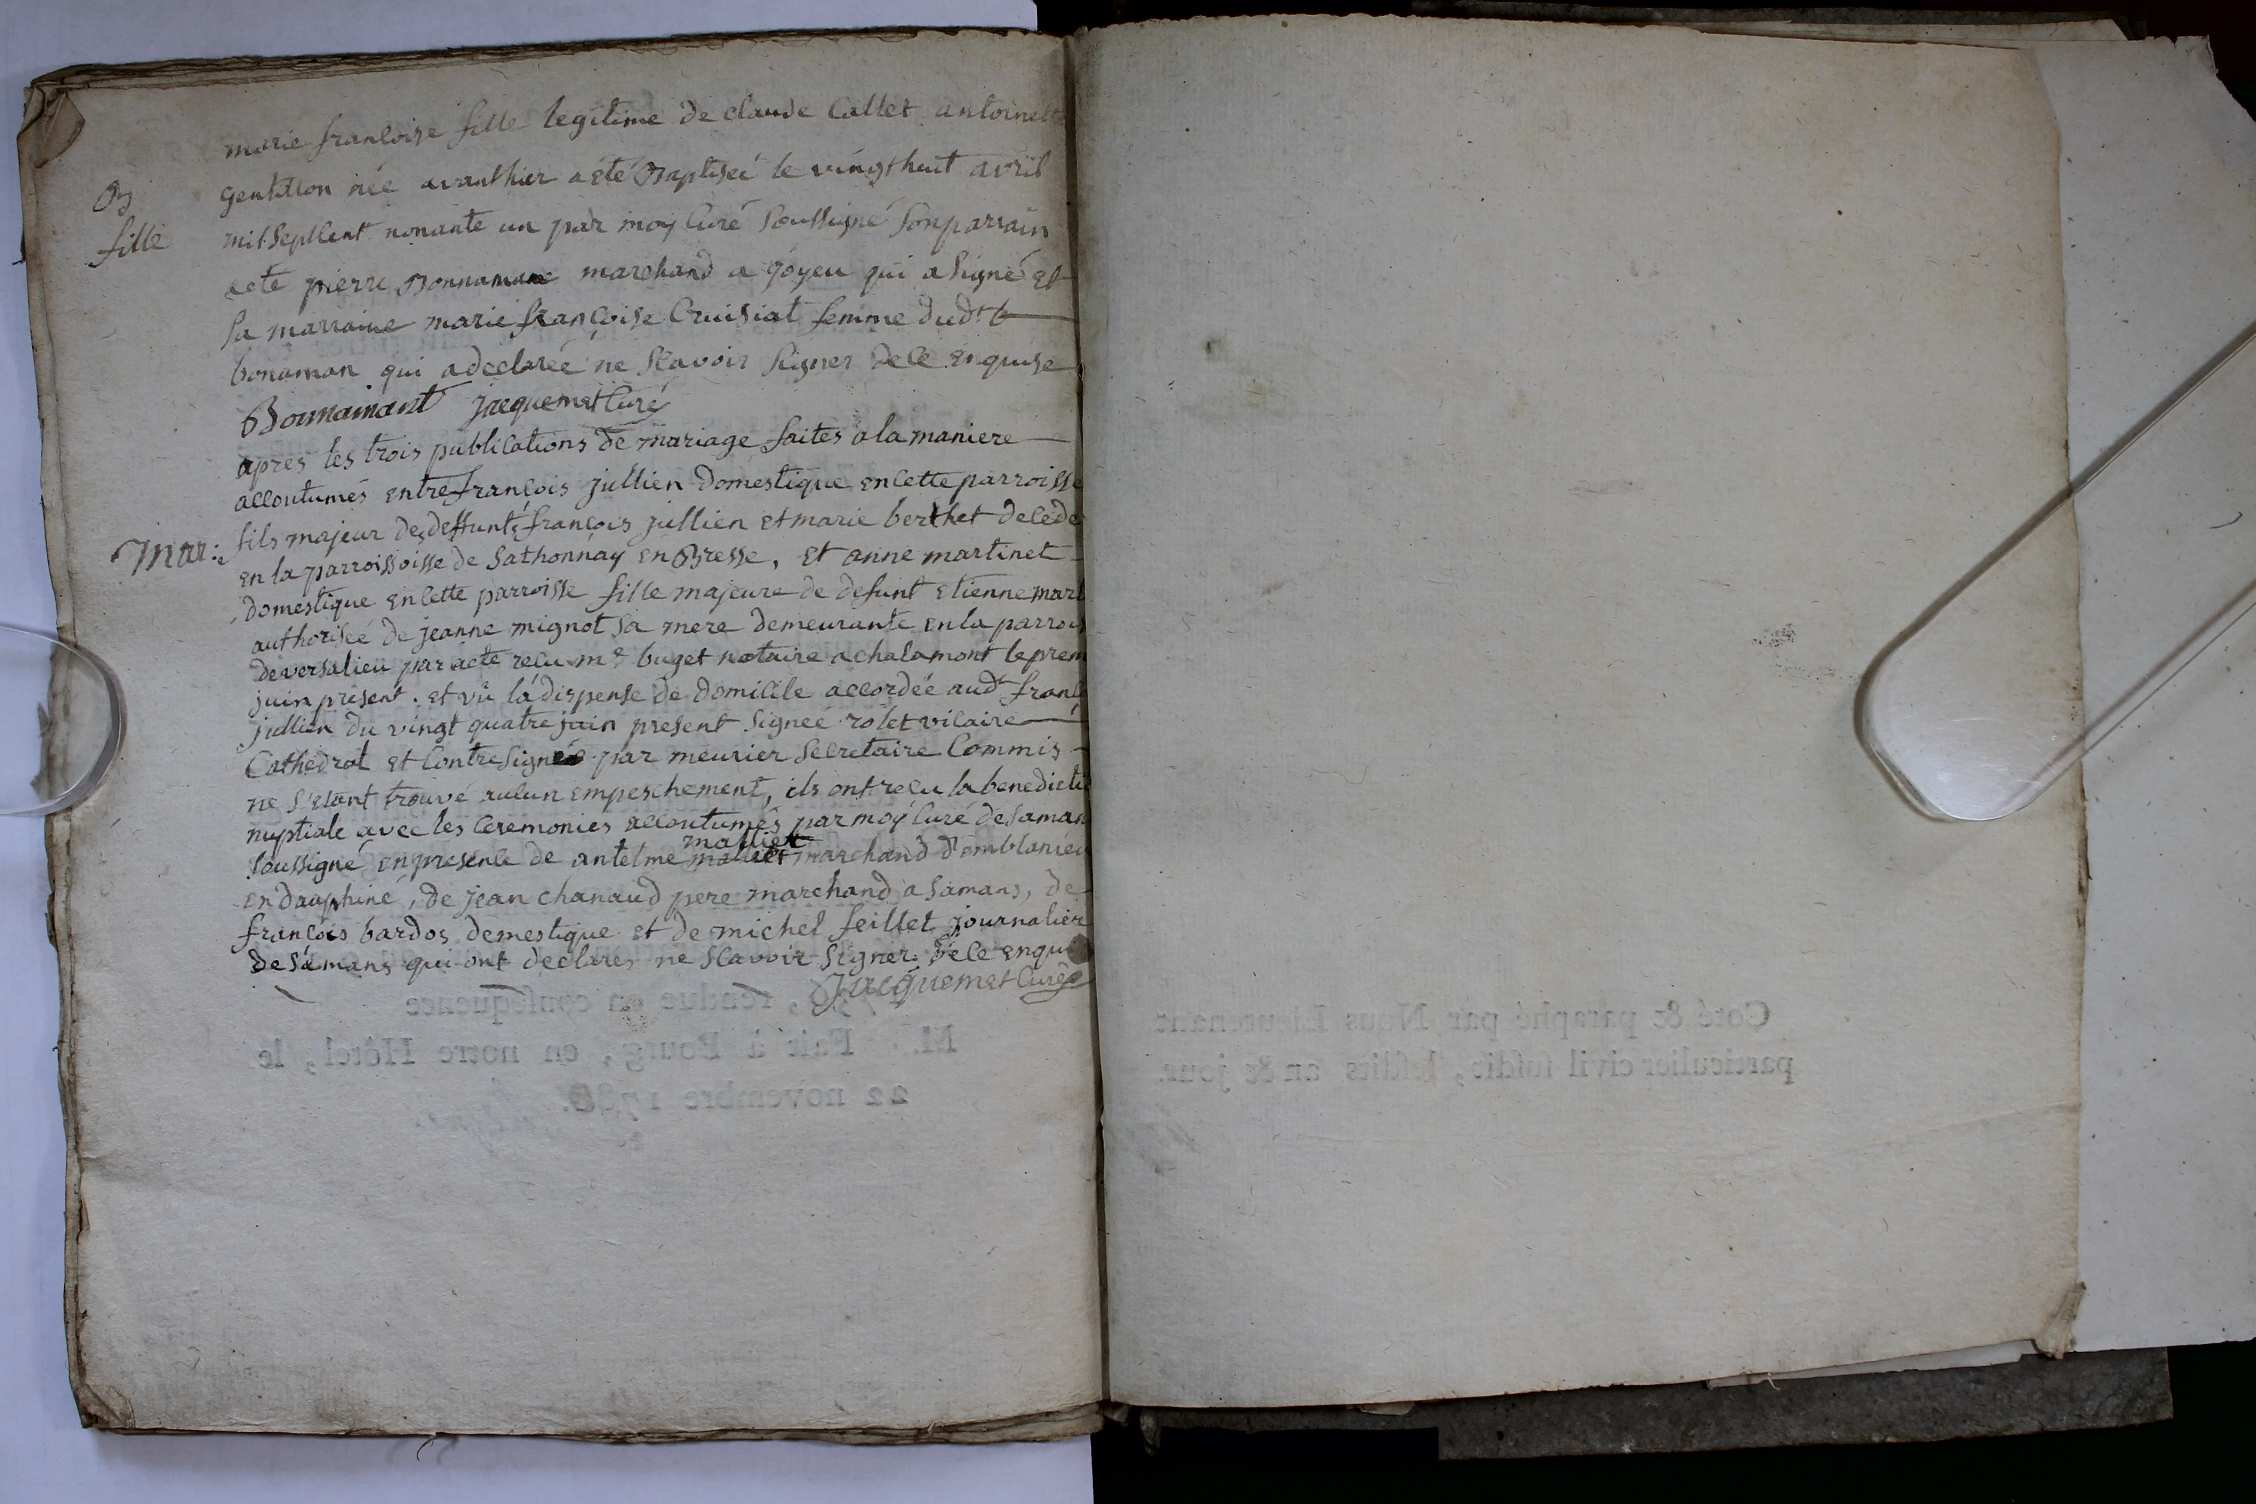 marie francoise fille legitime de claude Callet antoinette
B
gentillon née avanthier a eté Baptiseé le vingt huit avril
fille
mil Sept Cent nonante un par moy Curé Soussigné Son parrain
a eté pierre Bonnaman marchand a joyeu qui a Signé et
Sa marraine marie françoise Cruisiat femme dudt b
bonaman qui a declareé ne Scavoir Signer de Ce Enquise
Bonnamant jacquemet Curé
apres les trois publications de mariage faites a la maniere
accoutumés entre françois jullien Domestique en Cette parroisse
Mar:e
fils majeur de deffunts françois jullien et marie berthet decede
en la parroissoisse de Sathonnay en Bresse, et anne martinet
domestique en Cette parroisse fille majeure de defunt etienne mart
authoriseé de jeanne mignot Sa mere demeurante en la parrois
de versalieu par acte recu me buget notaire a chalamont le prem
juin présent. et vû la dispense de domicile accordée audt franc
jullien du vingt quatre juin present Signeé rolet vicaire
Cathedral et Contresigneé par meunier Secretaire Commis
ne S'etant trouvé aucun empeschement, ils ont recu la benedictio
nuptiale avec les Ceremonies accoutumés par moy Curé de Saman
mallet
Soussigné en presence de antelme mallet marchand d'emblanieu
en dauphiné, de jean chanaud pere marchand a Samans, de
françois bardos demestique et de michel feillet journalier
de Samans qui ont declarés ne Scavoir Signer de Ce enqui
Jacquemet Curé
, rendue en conséquence
M. Fait à Bourg, en notre Hôtel, le
22 novembre 1786.
Coté & paraphé par Nous Lieutenant
particulier civil susdit, lesdits an & jour.